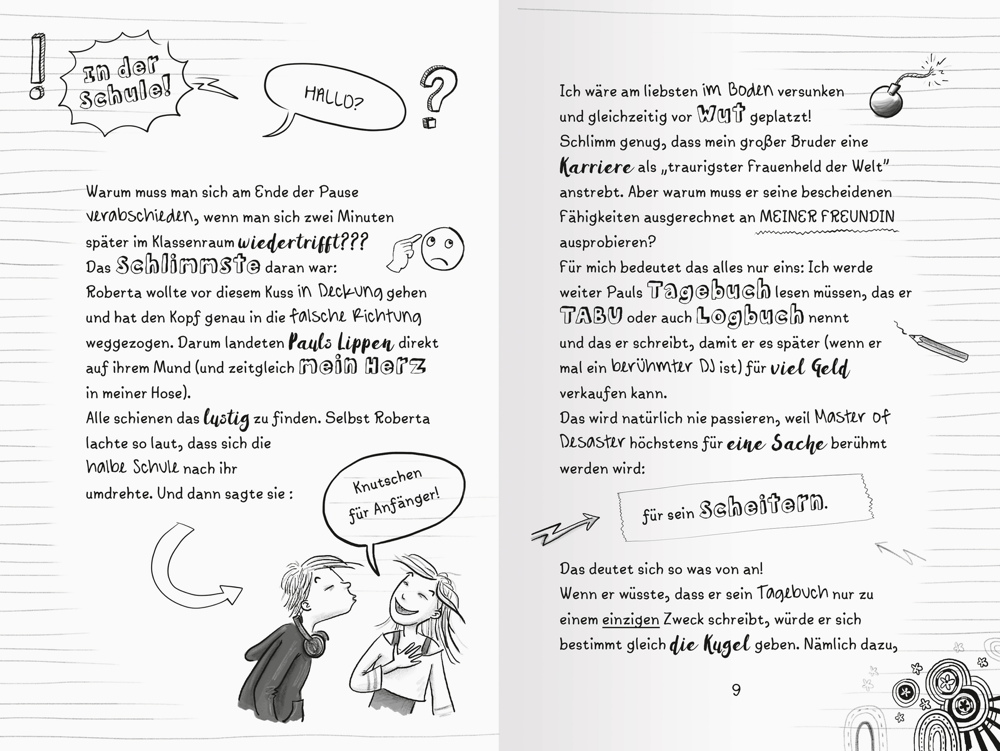 In der
Schule!
HALLO?
Warum muss man sich am Ende der Pause
verabschieden, wenn man sich zwei Minuten
später im Klassenraum wiedertrifft???
Das Schlimmste daran war:
Roberta wollte vor diesem Kuss in Deckung gehen
und hat den Kopf genau in die falsche Richtung
weggezogen. Darum landeten Pauls Lippen direkt
auf ihrem Mund (und zeitgleich mein Herz
in meiner Hose).
Alle schienen das lustig zu finden. Selbst Roberta
lachte so laut, dass sich die
halbe Schule nach ihr
umdrehte. Und dann sagte sie :
Knutschen
für Anfänger!
Ich wäre am liebsten im Boden versunken
und gleichzeitig vor Wut geplatzt!
Schlimm genug, dass mein großer Bruder eine
Karriere als „traurigster Frauenheld der Welt”
anstrebt. Aber warum muss er seine bescheidenen
Fähigkeiten ausgerechnet an MEINER FREUNDIN
ausprobieren?
Für mich bedeutet das alles nur eins: Ich werde
weiter Pauls Tagebuch lesen müssen, das er
TABU oder auch Logbuch nennt
und das er schreibt, damit er es später (wenn er
mal ein berühmter DJ ist) für viel Geld
verkaufen kann.
Das wird natürlich nie passieren, weil Master of
Desaster höchstens für eine Sache berühmt
werden wird:
für sein Scheitern.
Das deutet sich so was von an!
Wenn er wüsste, dass er sein Tagebuch nur zu
einem einzigen Zweck schreibt, würde er sich
bestimmt gleich die Kugel geben. Nämlich dazu,
9